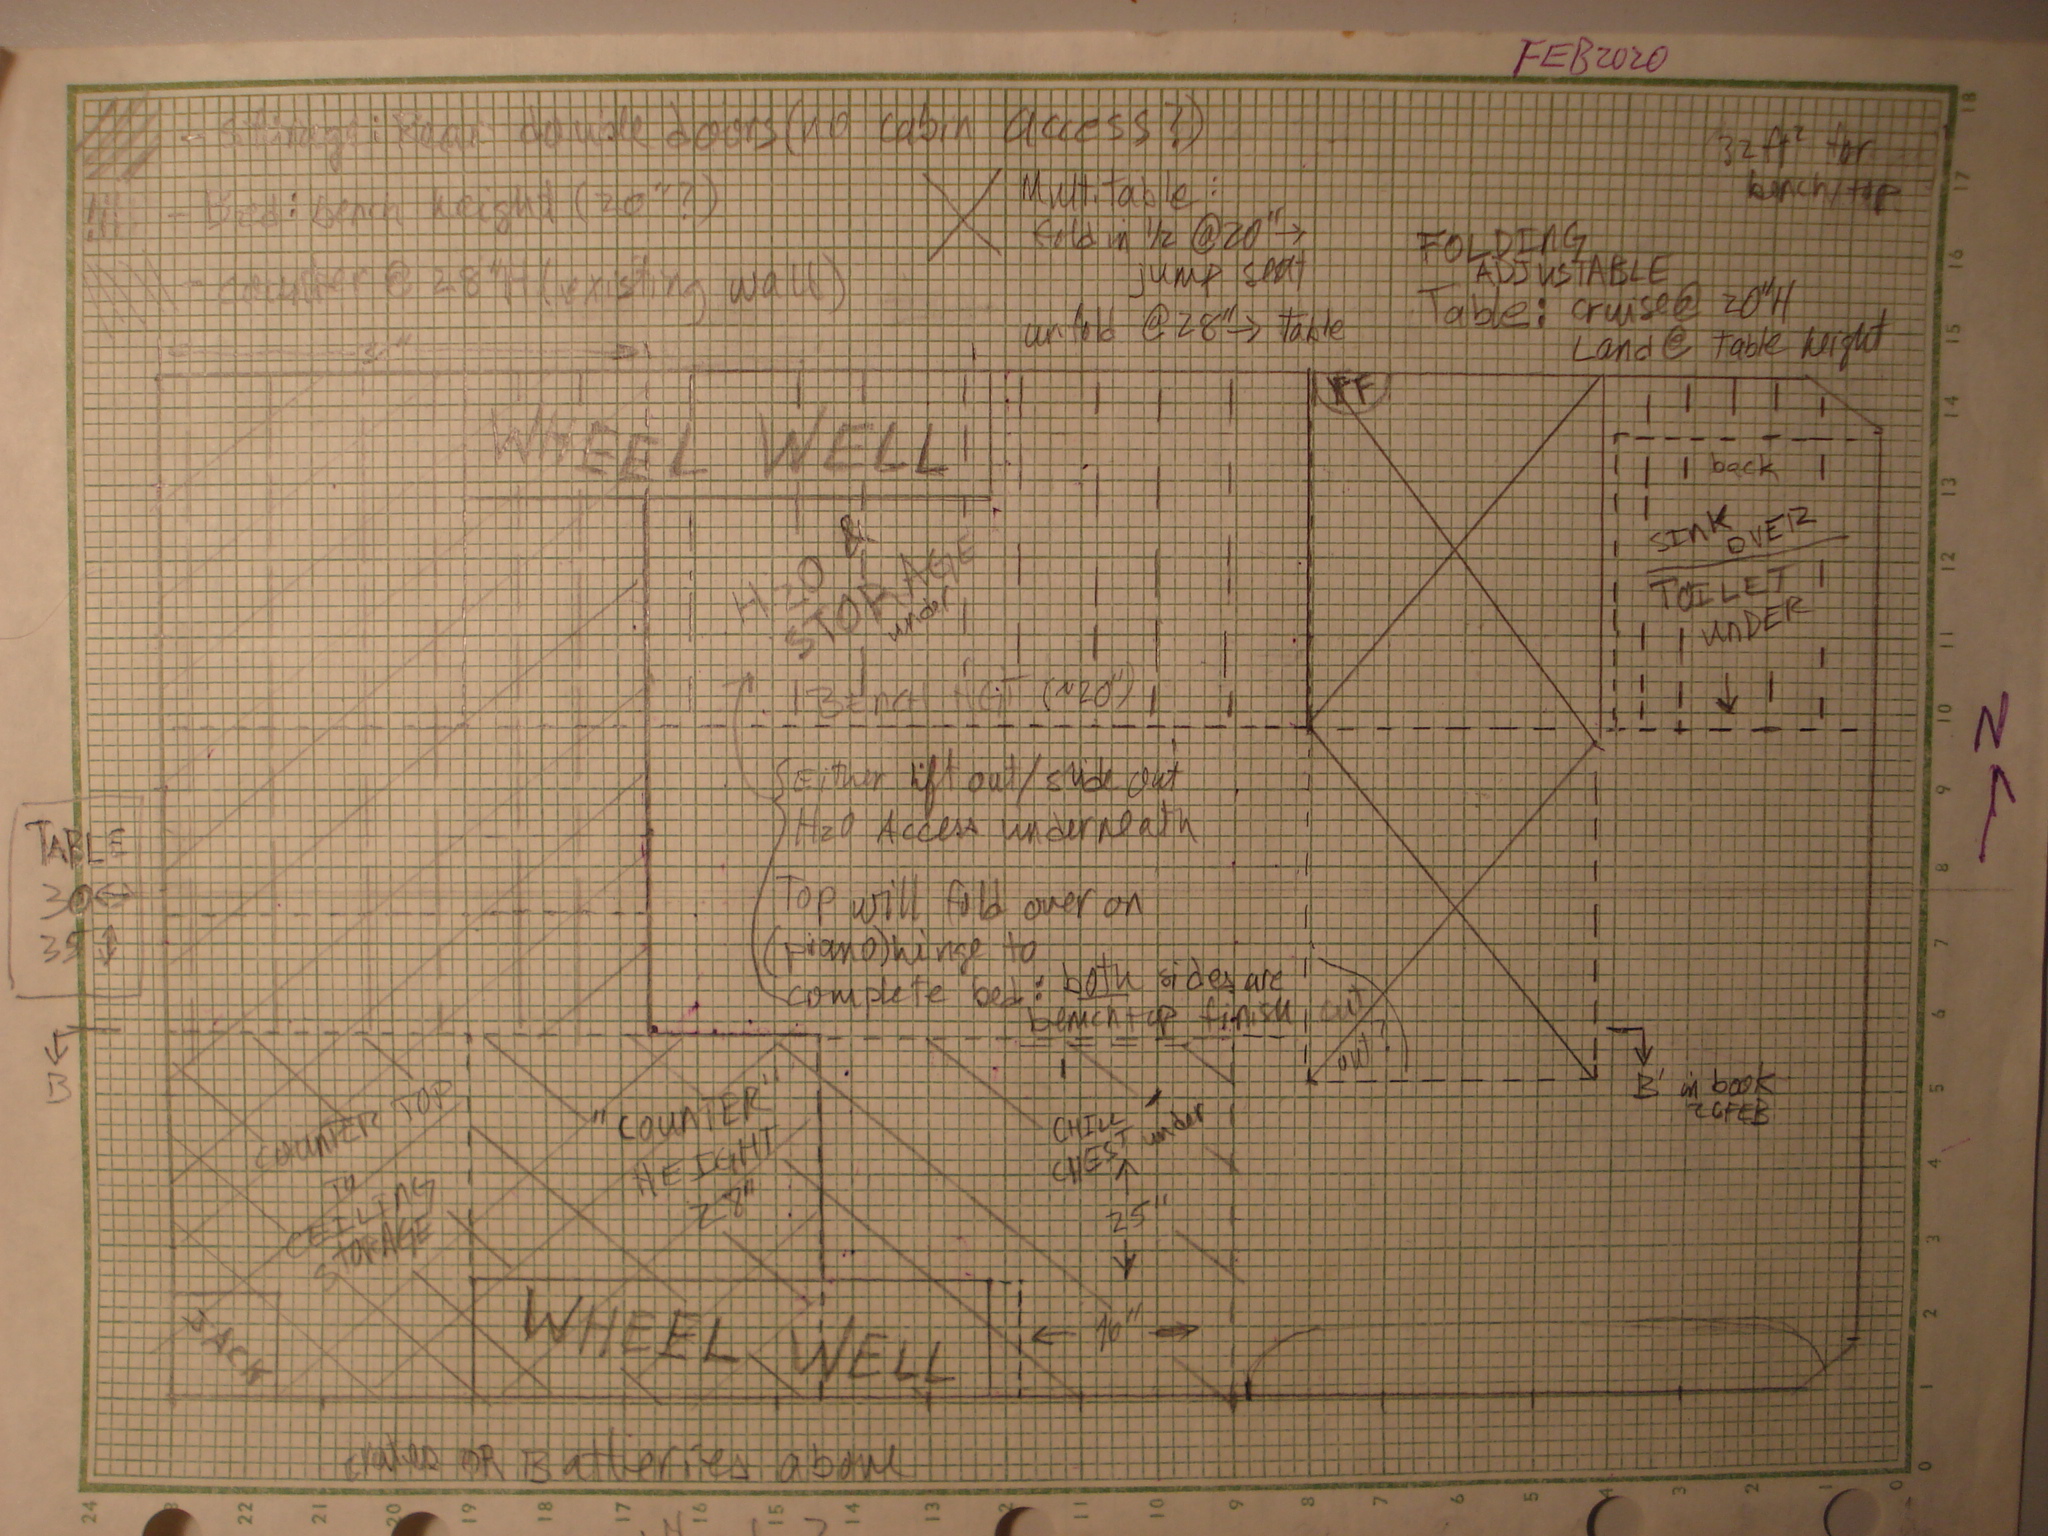 FEB2020
- Storage: Rear double doors (no cabin access?)
- Bed: Bench height (20"?)
- counter @ 28"H (existing wall)
32 ft² for
bench/top
Multitable:
fold in ½ @20"→
jump seat
unfold @28"→ table
FOLDING
ADJUSTABLE
Table: cruise @ 20"H
Land @ table height
WHEEL WELL
FF
back
SINK
OVER
TOILET
UNDER
H2O &
STORAGE
under
BENCH HGT (~20")
Either lift out/slide out
H2O Access underneath
Top will fold over on
(piano) hinge to
complete bed: both sides are
benchtop finish
cut
out?
TABLE
30 ↔
35 ↕
B
B' in book
26FEB
N
COUNTER TOP
TO
CEILING
STORAGE
"COUNTER"
HEIGHT
28"
CHILL
CHEST under
25"
WHEEL WELL
← 10" →
JACK
crates OR Batteries above
18
17
16
15
14
13
12
11
10
9
8
7
6
5
4
3
2
1
0
24 22 21 20 19 18 17 16 15 14 13 12 11 10 9 8 7 6 5 4 3 2 1 0